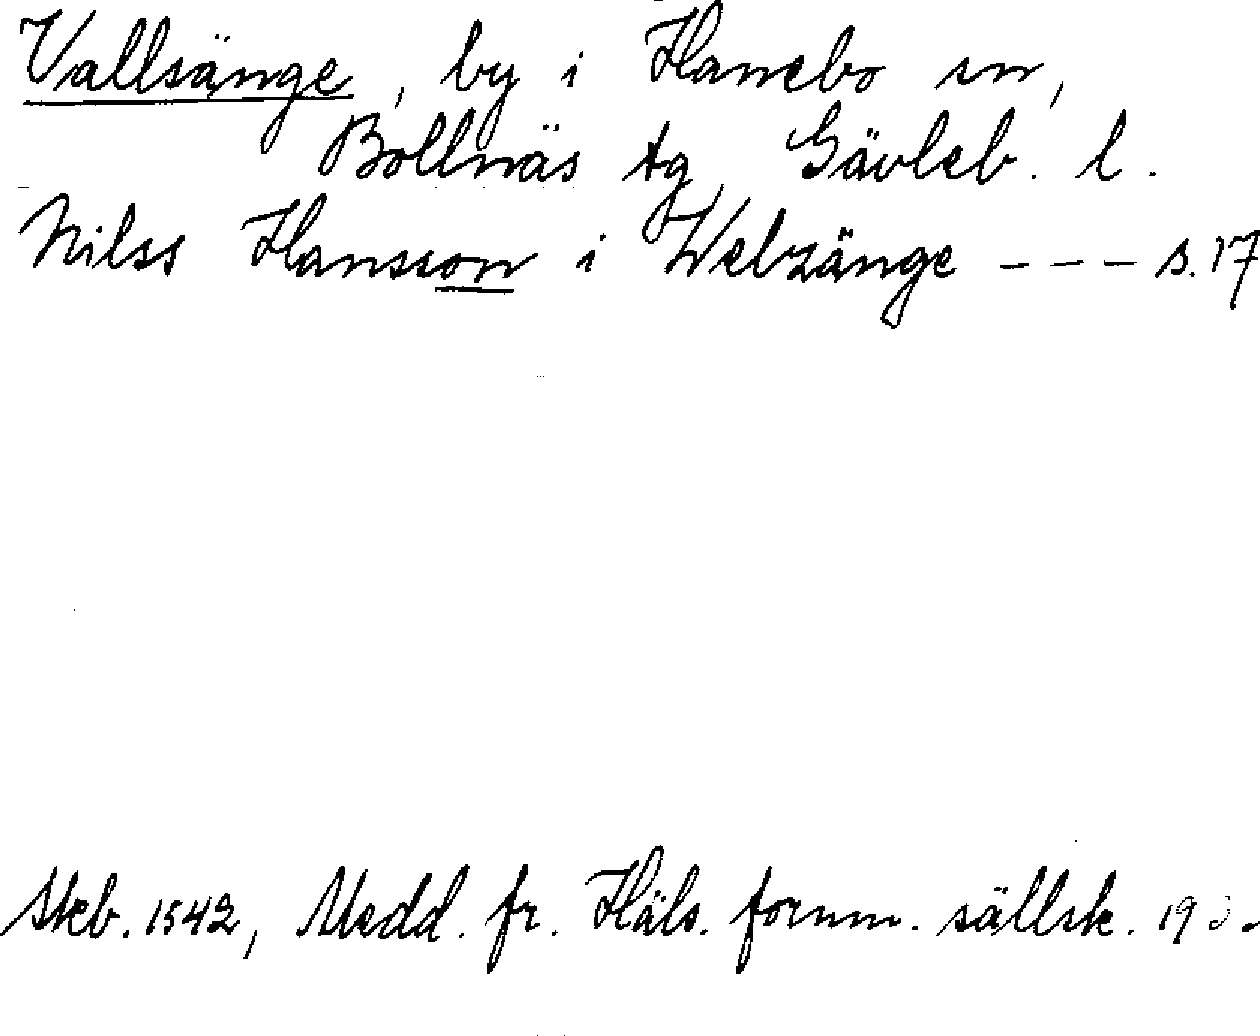 Vallsänge, by i Hanebo sn,
Bollnäs tg, Gävleb. l.
Nilss Hansson i Welzänge --- s. 17
Skb. 1542, Medd. fr. Häls. fornm. sällsk.